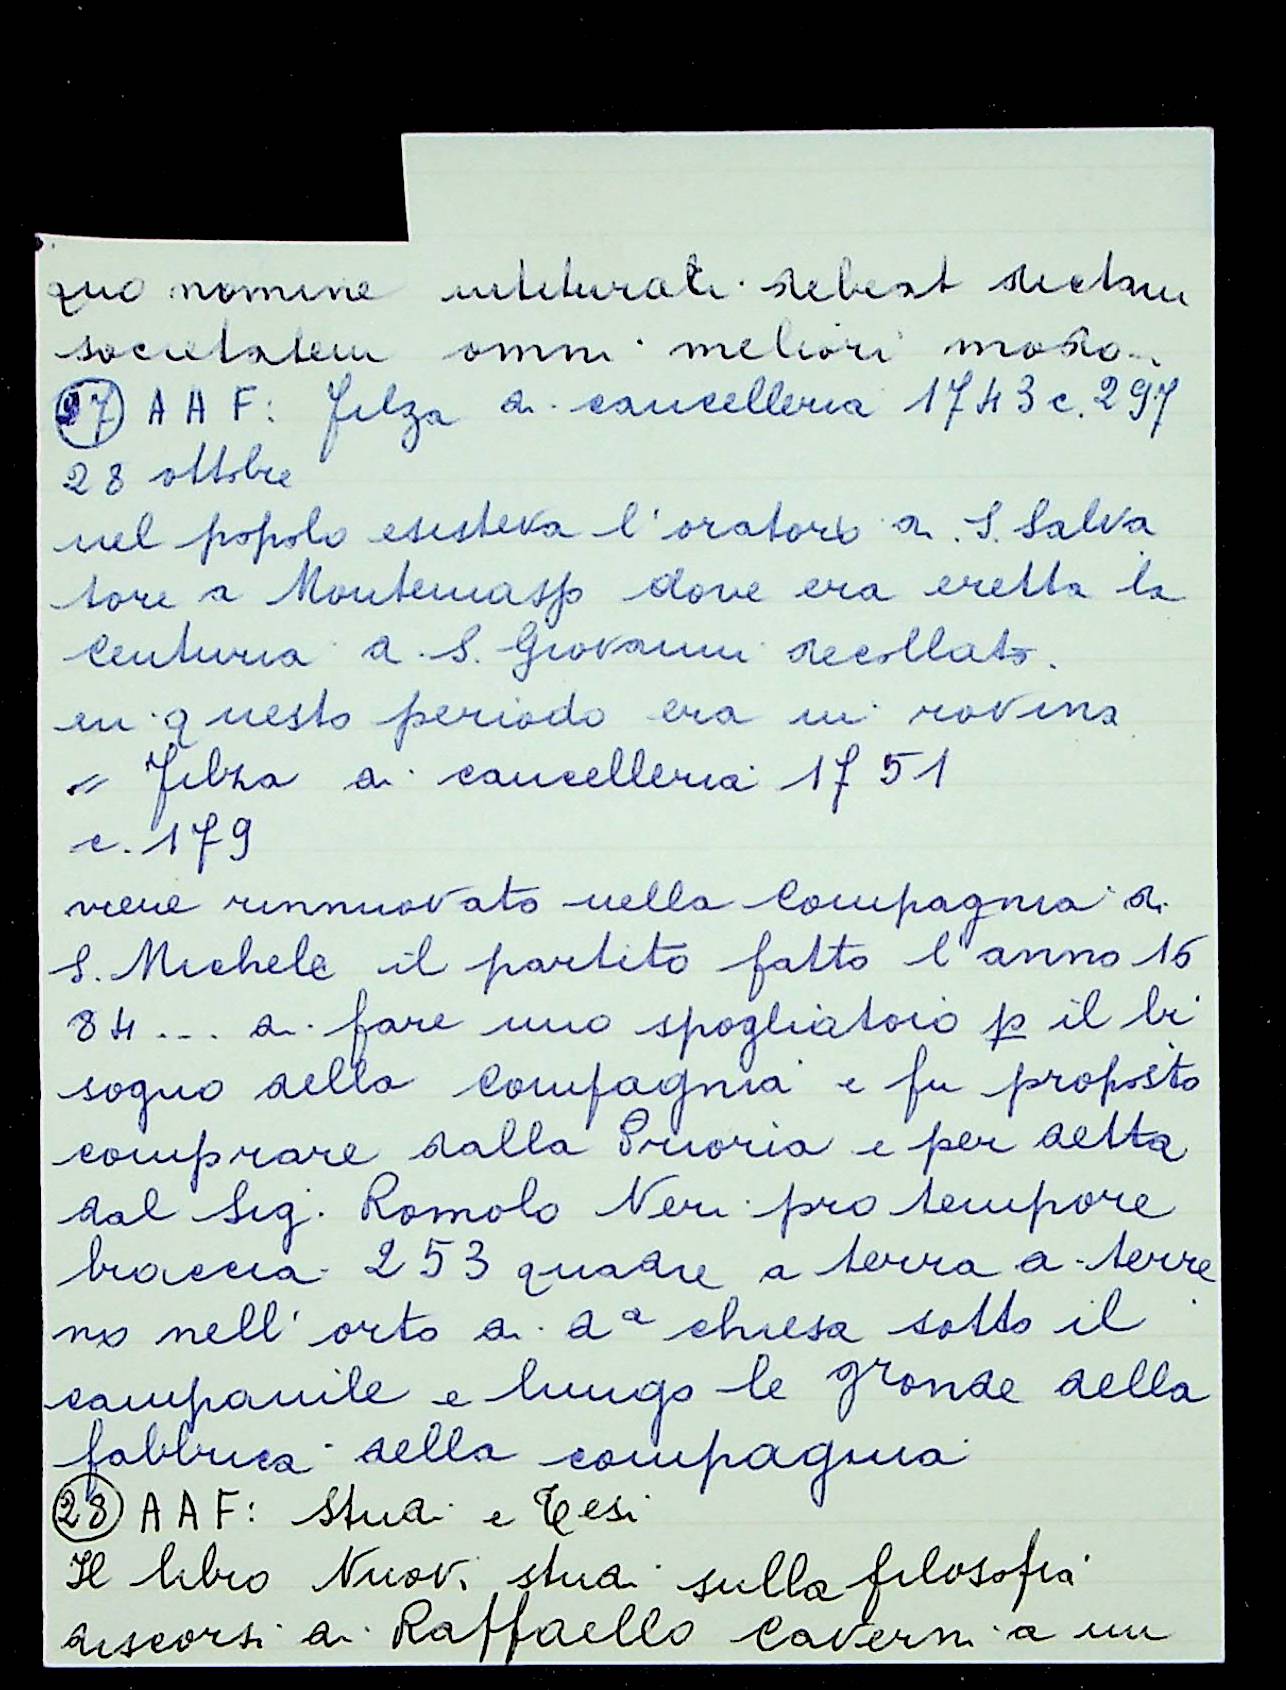 quo nomine intiturati debeat dictam
societatem omni meliori modo..
27 A A F: Filza di cancelleria 1743 c. 297
28 ottobre
nel popolo esisteva l'oratorio di S. Salva
tore a Montemasp dove era eretta la
Centuria di S. Giovanni decollato.
in questo periodo era in rovina
= Filza di cancelleria 1751
c. 179
viene rinnuovato nella Compagnia di
S. Michele il partito fatto l'anno 16
84 ... di fare uno spogliatoio p il bi
sogno della Compagnia e fu proposto
comprare dalla Prioria e per detta
dal Sig. Romolo Neri pro tempore
braccia 253 quadre a terra a terre
no nell'orto di dª chiesa sotto il
campanile e lungo le gronde della
fabbrica della compagnia
28 A A F: Studi e Tesi
Il libro Nuovi studi sulla filosofia
discorsi di Raffaello Caverni a un